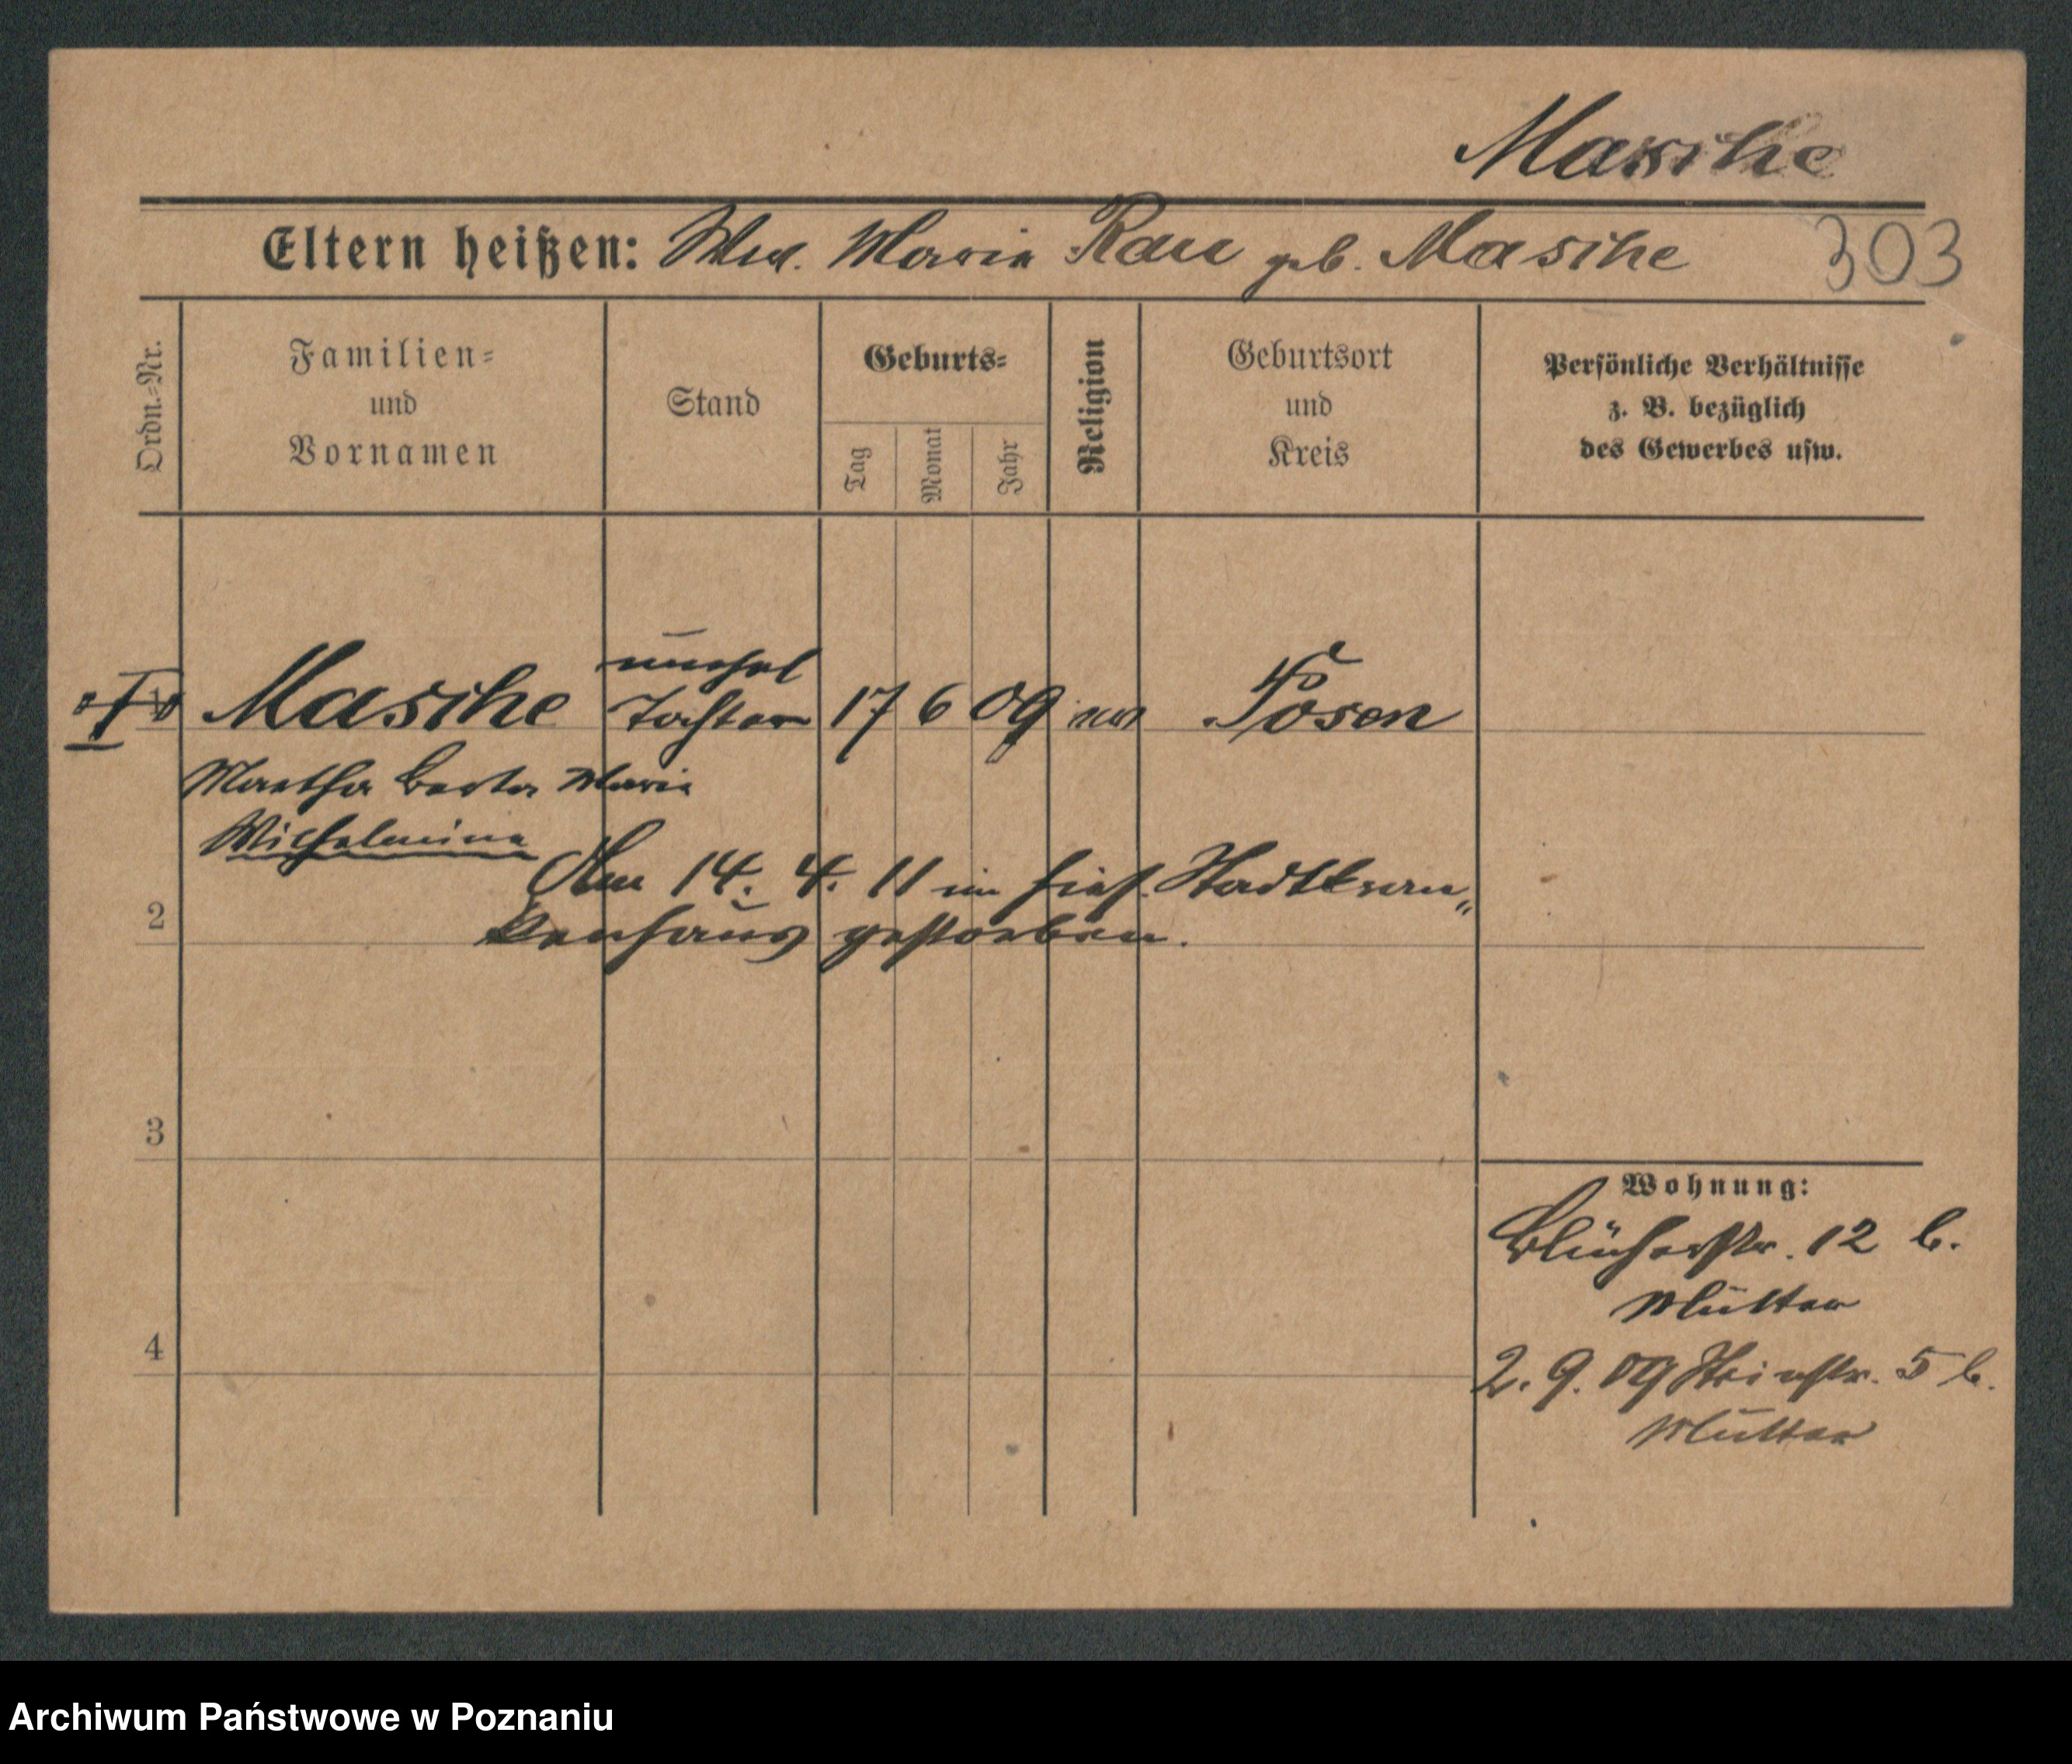 Masche
Eltern heißen: Wwe. Maria Rau geb. Masche 303
Ordn.=Nr.
Familien=
und
Vornamen
Stand
Geburts=
Tag
Monat
Jahr
Religion
Geburtsort
und
Kreis
Persönliche Verhältnisse
z. B. bezüglich
des Gewerbes usw.
unehel
Masche Tochter 17 6 09 Posen
Martha Berta Maria
Wilhelmina
Am 14. 4. 11 im hies. Stadtkran„
2
kenhaus gestorben.
3
4
Wohnung:
Blücherstr. 12 b.
Mutter
2. 9. 09 5 b.
Mutter
Archiwum Państwowe w Poznaniu